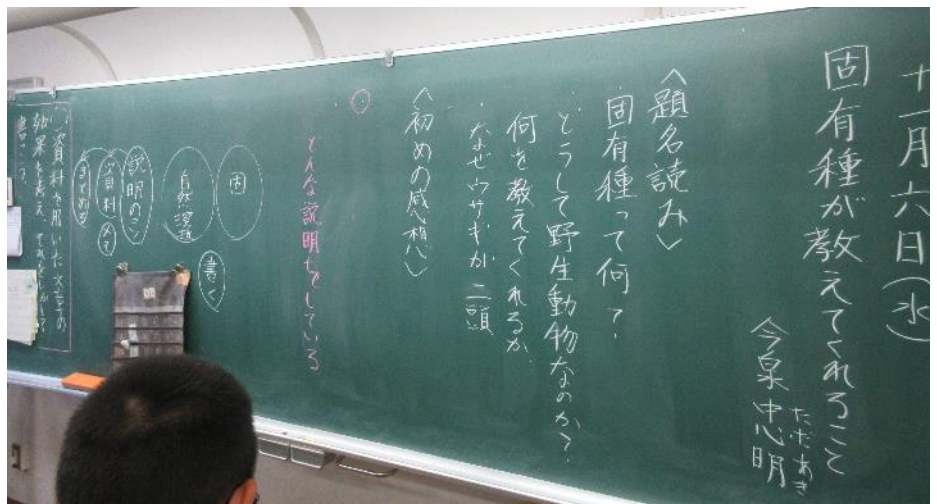 十一月六日(水)
固有種が教えてくれること
今泉忠明
ただあき
〈題名読み〉
固有種って何?
・どうして野生動物なのか?
何を教えてくれるか、
・なぜウサギが二頭
〈初めの感想〉
どんな説明をしている
固
自然
書く
説明の
資料
まとめる
資料を用いた文章の
効果を考え
書こう。